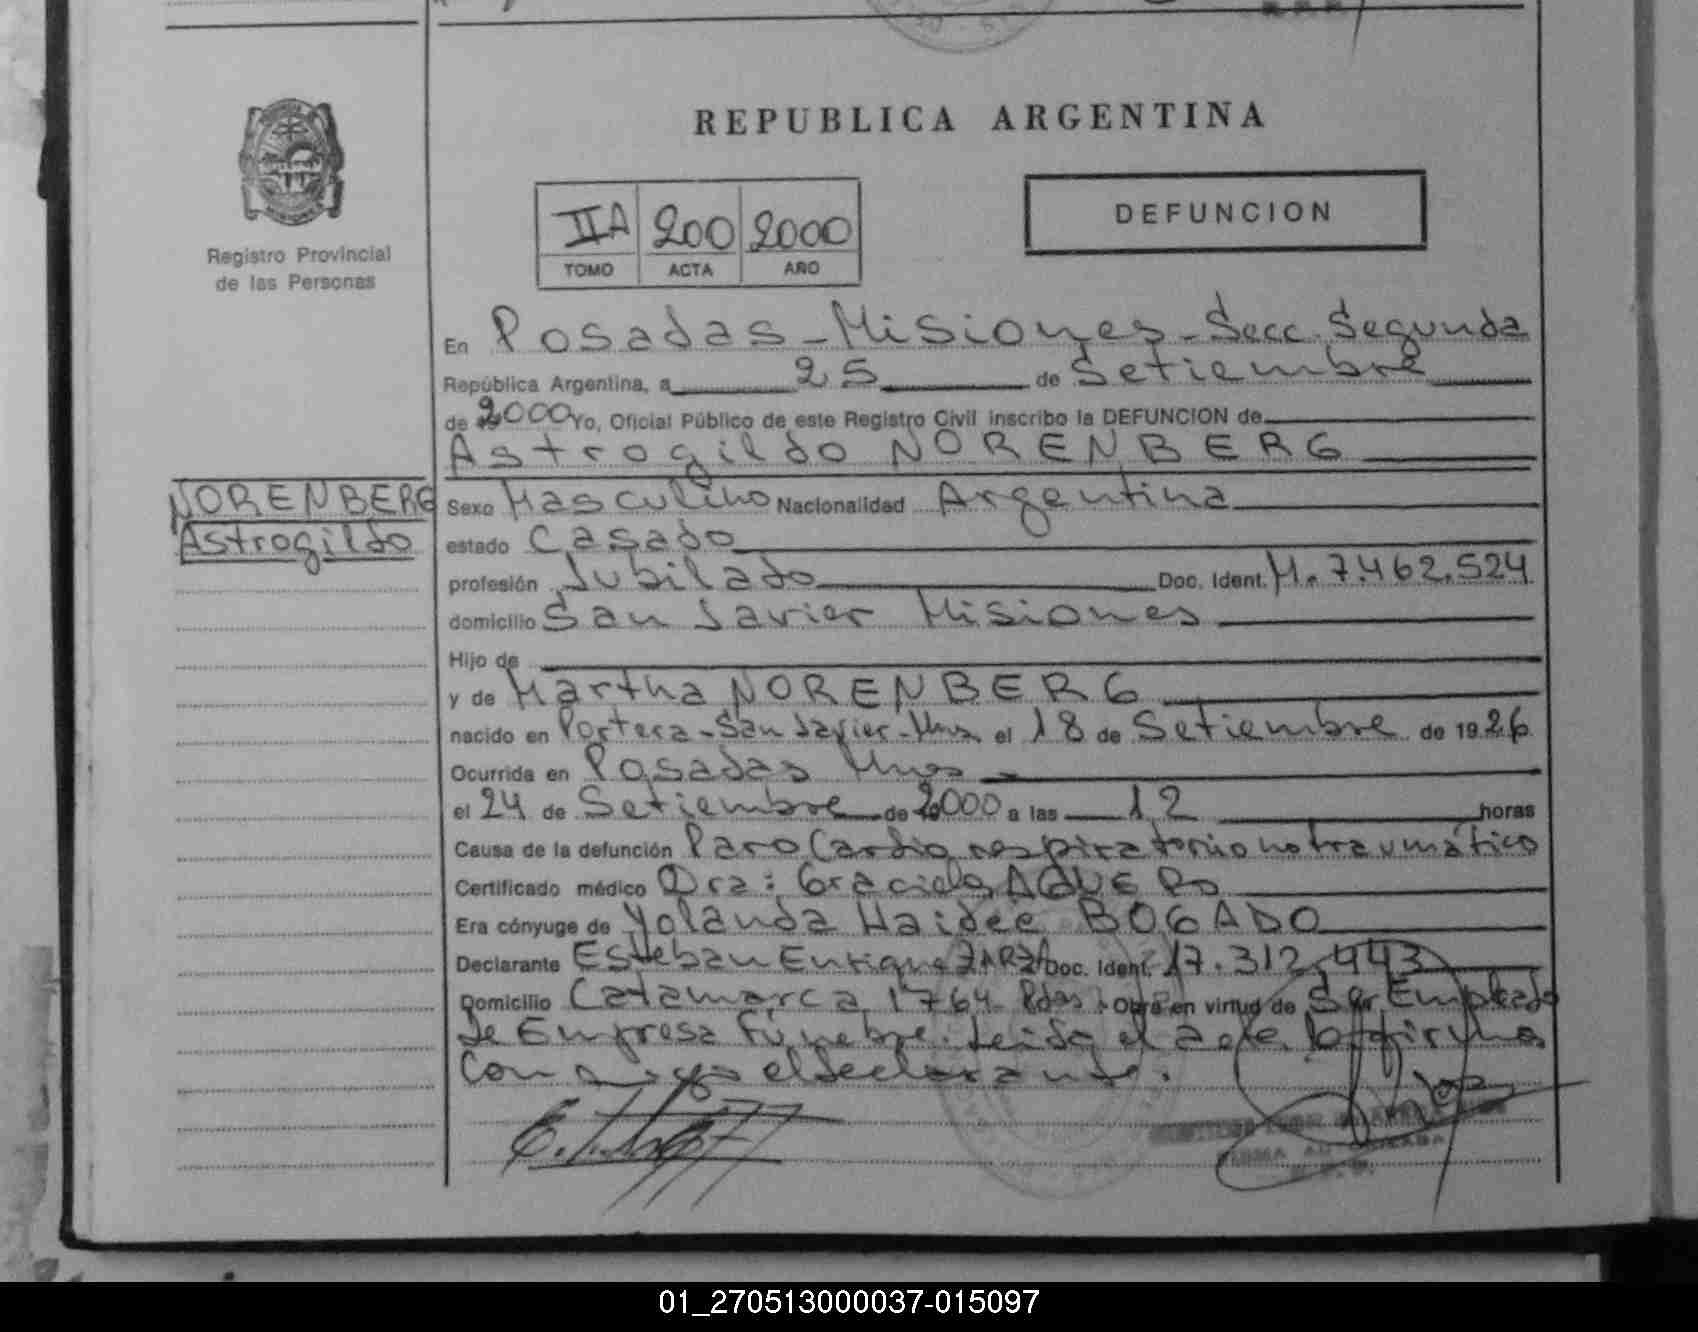 REPUBLICA ARGENTINA
Registro Provincial
de las Personas
IIA 200 2000
TOMO ACTA AÑO
DEFUNCION
En Posadas - Misiones - Secc. Segunda
República Argentina, a 25 de Setiembre
de 2000 Yo, Oficial Público de este Registro Civil inscribo la DEFUNCION de
Astrogildo NORENBERG
NORENBERG
Astrogildo
Sexo Masculino Nacionalidad Argentina
estado Casado
profesión Jubilado Doc. Ident. M. 7.462.524
domicilio San Javier Misiones
Hijo de
y de Martha NORENBERG
nacido en Portera - San Javier - Mnes el 18 de Setiembre de 1926
Ocurrida en Posadas Mnes
el 24 de Setiembre de 2000 a las 12 horas
Causa de la defunción Paro Cardio respiratorio no traumático
Certificado médico Dra: Graciela AGUERO
Era cónyuge de Yolanda Haidee BOGADO
Declarante Esteban Enrique ZARZA Doc. Ident. 17.312.443
Domicilio Catamarca 1764 Pdas. Obra en virtud de Ser Empleado
de Empresa Fúnebre. Leida el acta la firma
Conmigo el declarante.
01_270513000037-015097